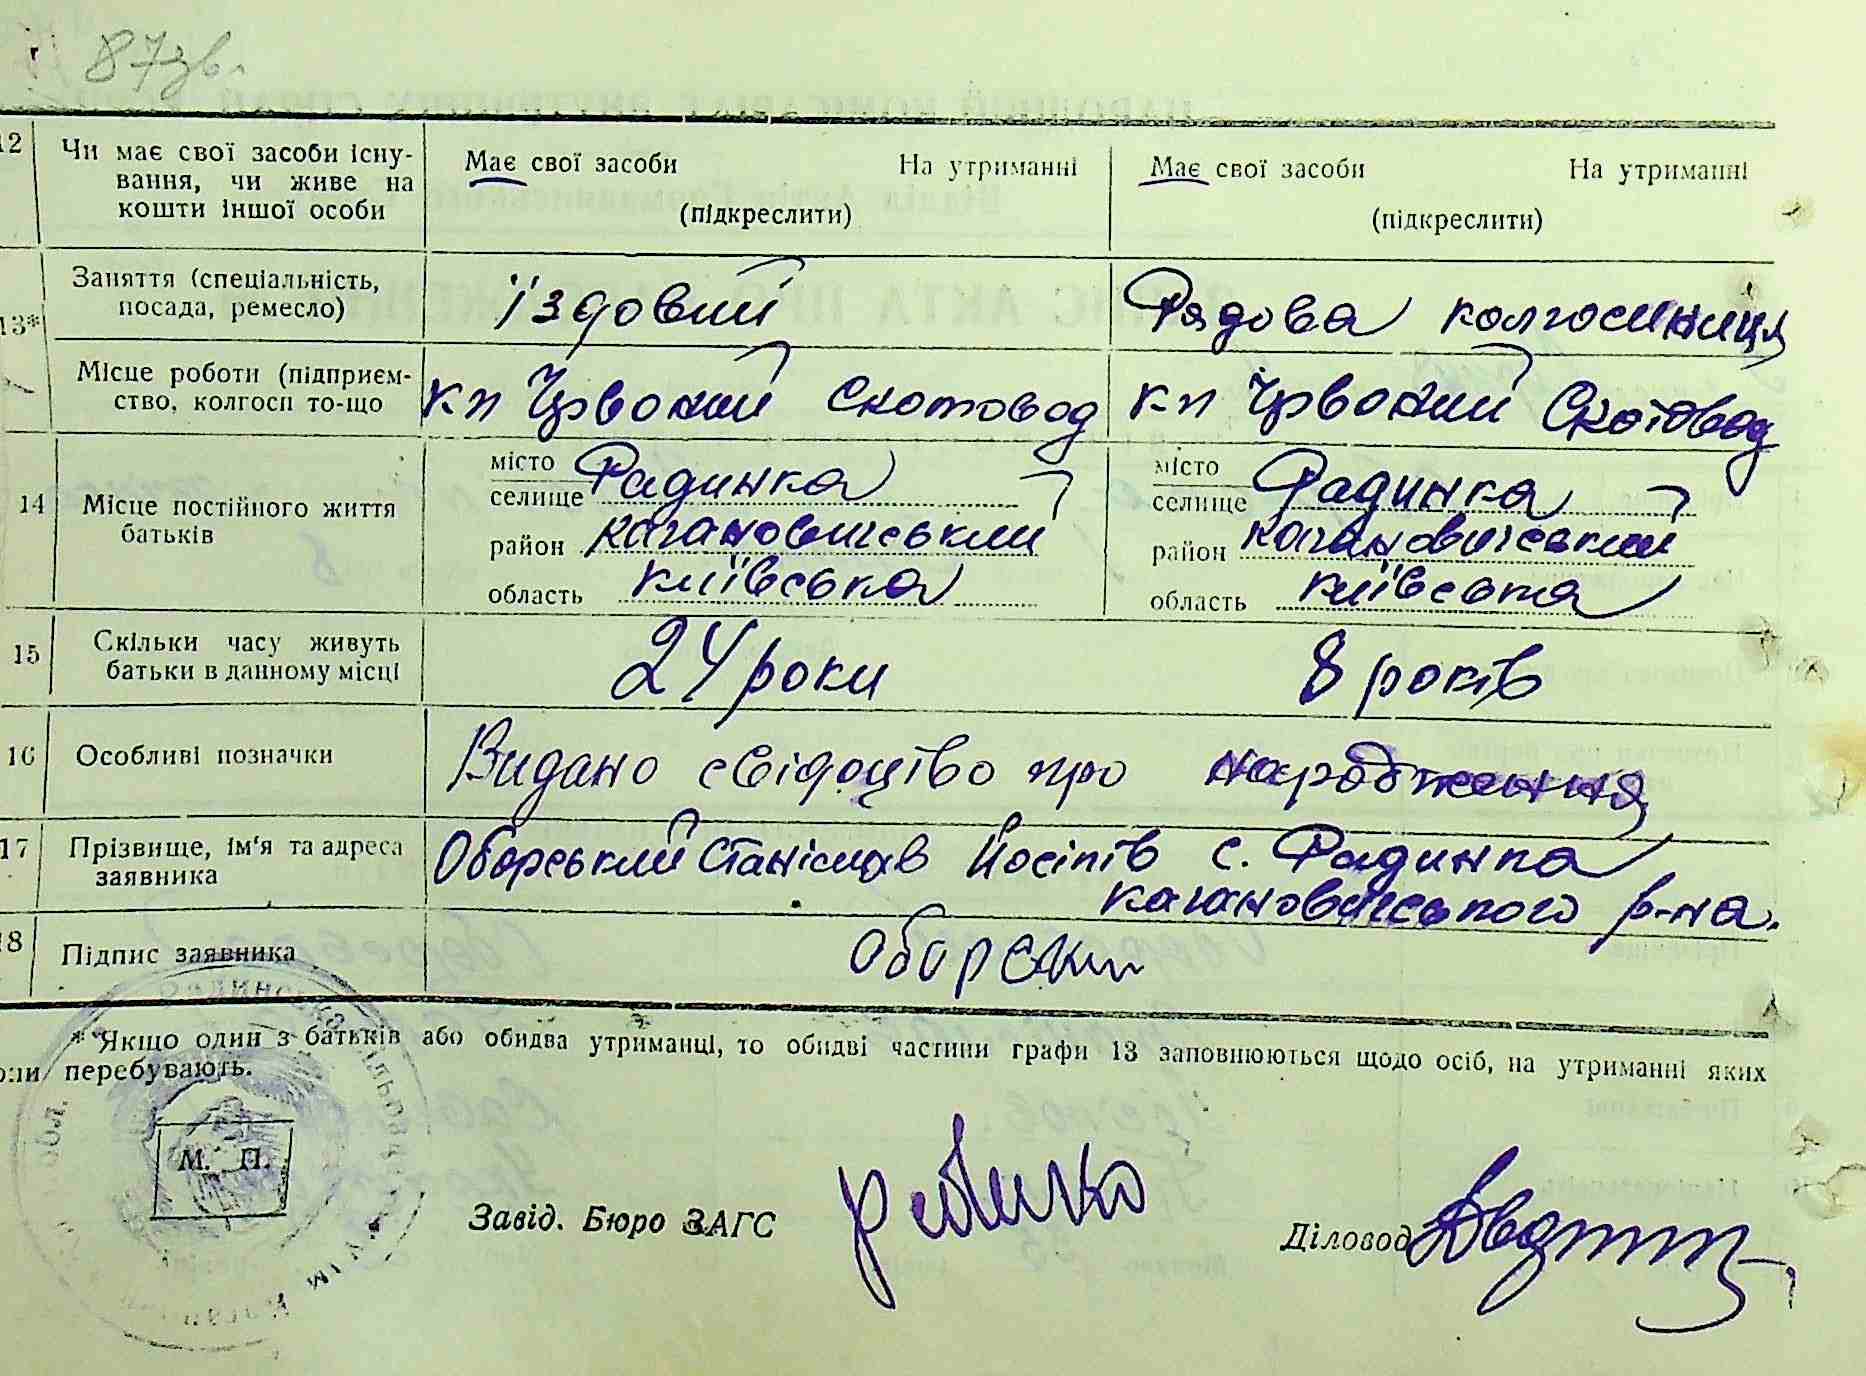 87зв.
12 Чи має свої засоби існу-
вання, чи живе на
кошти іншої особи
Має свої засоби На утриманні
(підкреслити)
Має свої засоби На утриманні
(підкреслити)
13* Заняття (спеціальність,
посада, ремесло)
їздовий
Рядова колгосниця
Місце роботи (підприєм-
ство, колгосп то-що
кп Чрвоний Скотовод
кп Чрвоний Скотовод
14 Місце постійного життя
батьків
місто
селище Радинка
район кагановичський
область київська
місто
селище Радинка
район кагановичський
область київська
15 Скільки часу живуть
батьки в данному місці
24 роки
8 років
16 Особливі позначки
Видано свідоцтво про народження
17 Прізвище, ім'я та адреса
заявника
Оборський Станіслав Йосіпів с. Радинка
кагановичського р-на.
18 Підпис заявника
Оборский
* Якщо один з батьків або обидва утриманці, то обидві частини графи 13 заповнюються щодо осіб, на утриманні яких
вони перебувають.
М. П.
Завід. Бюро ЗАГС
Діловод